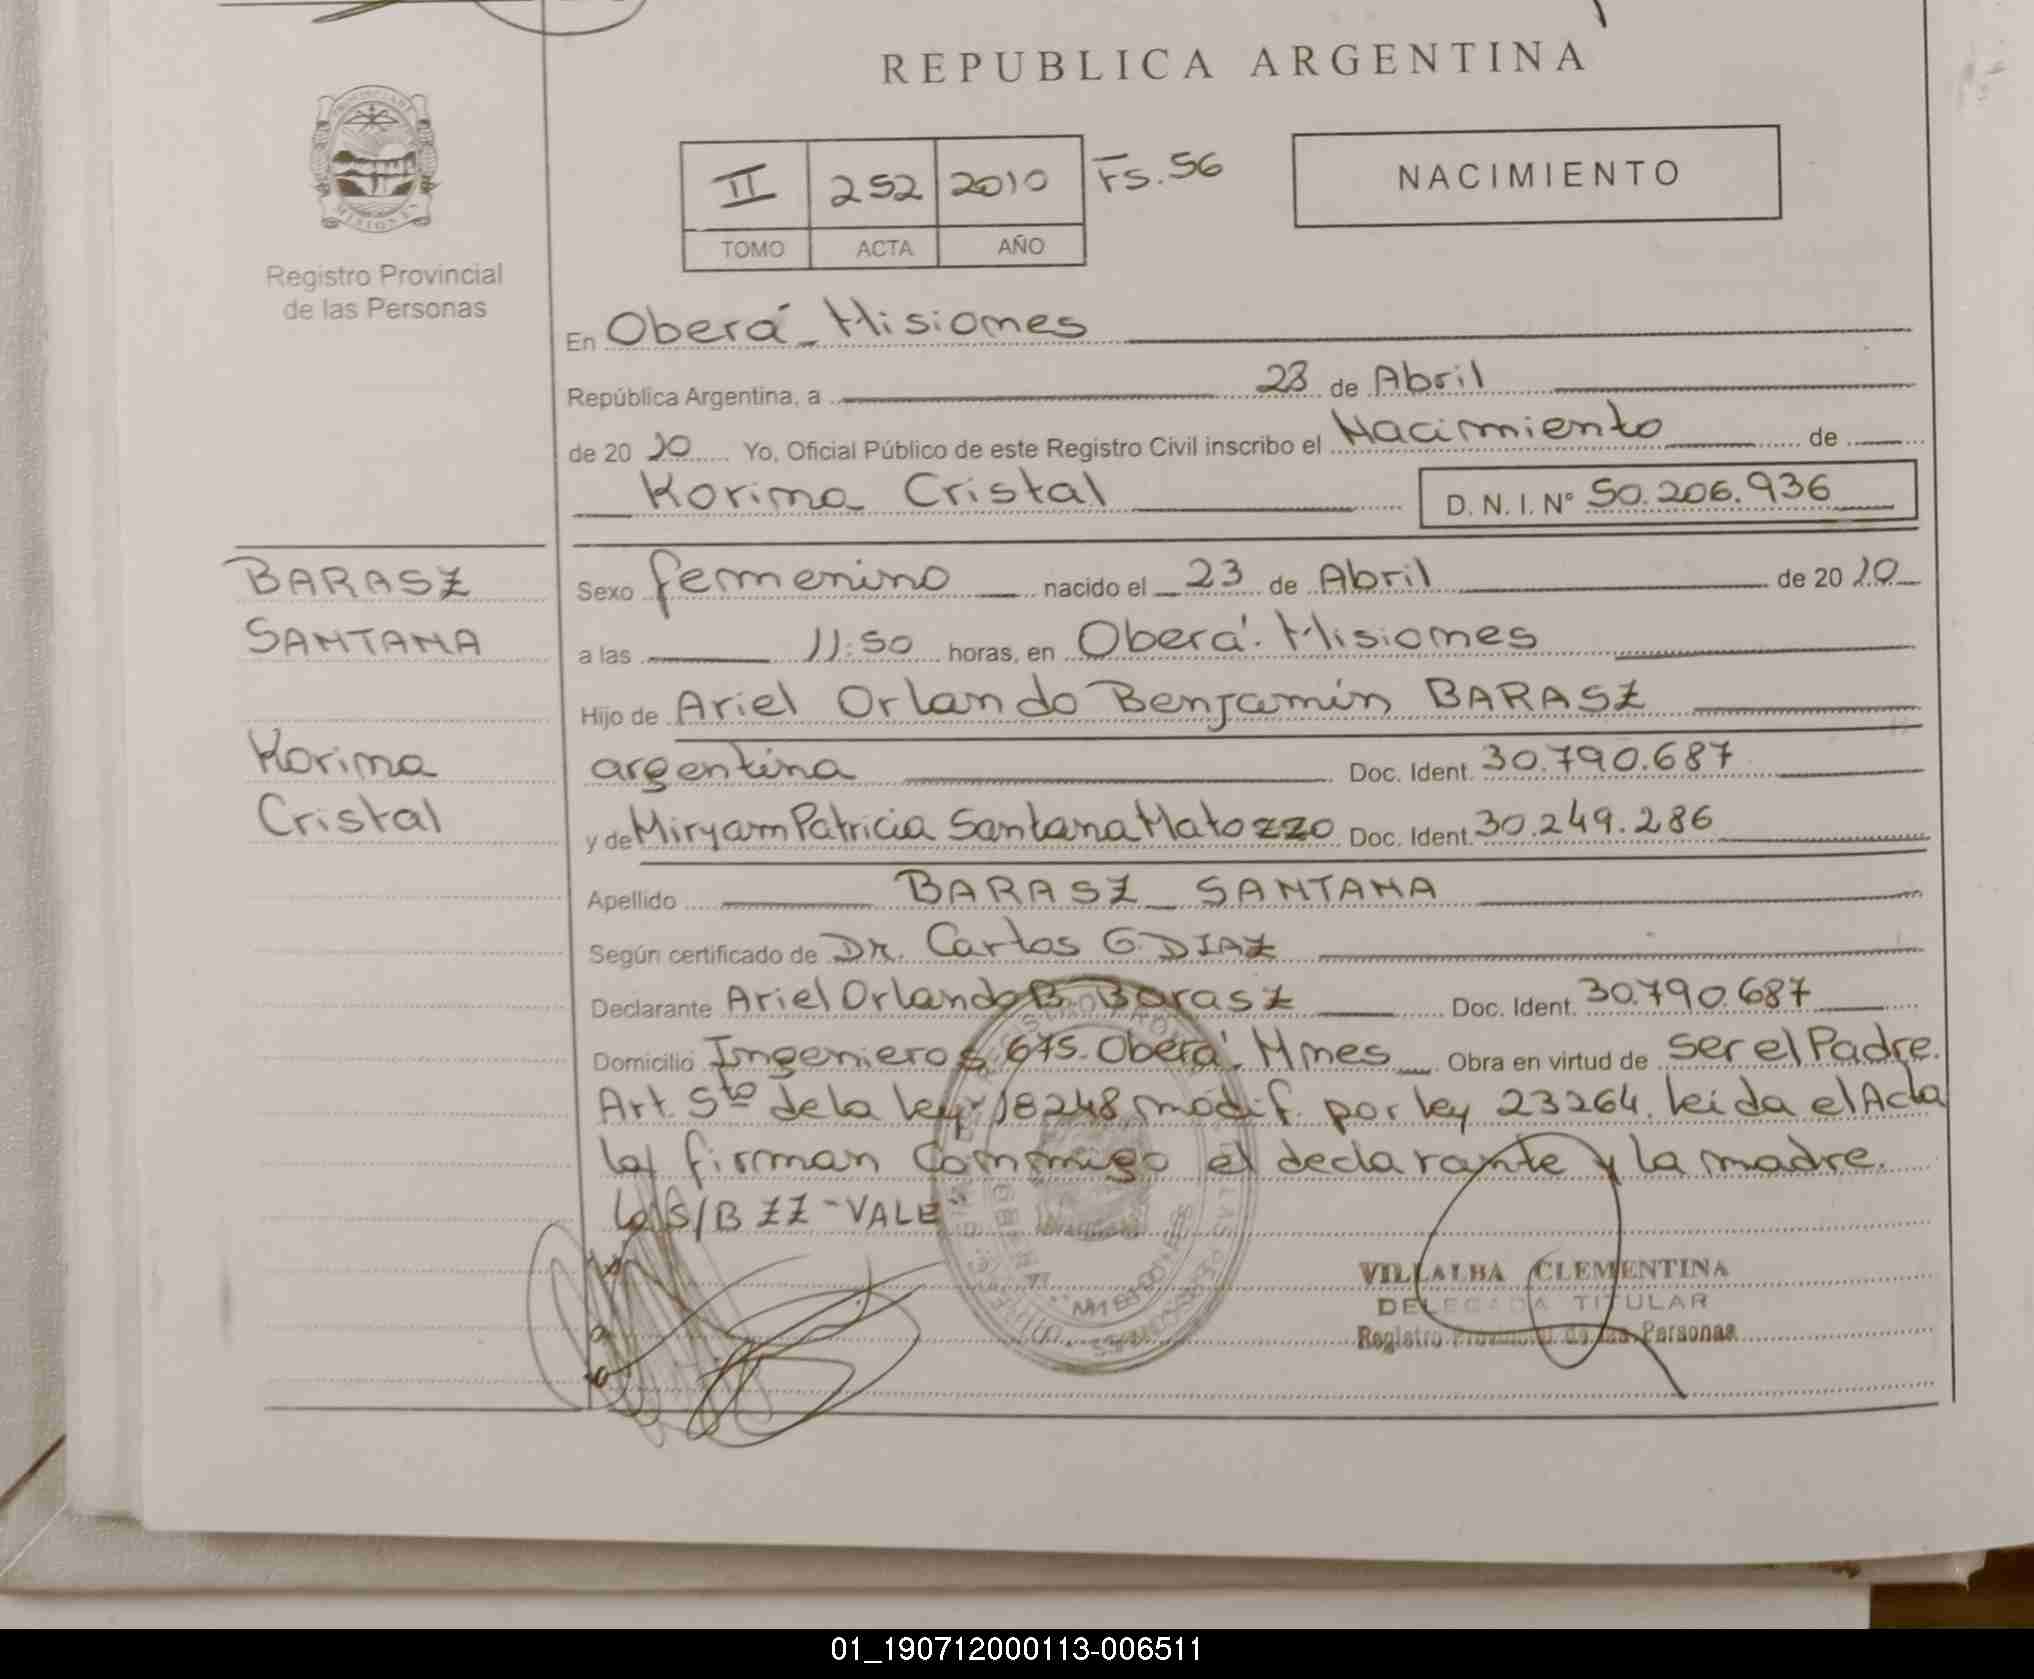 REPUBLICA ARGENTINA
Registro Provincial
de las Personas
II 252 2010 Fs. 56
TOMO ACTA AÑO
NACIMIENTO
En Oberá - Misiones
República Argentina, a 23 de Abril
de 20 10 Yo, Oficial Público de este Registro Civil inscribo el Nacimiento de
Korina Cristal D. N. I. N° 50.206.936
BARASZ
SANTANA
Korina
Cristal
Sexo femenino nacido el 23 de Abril de 20 10
a las 11:50 horas, en Oberá. Misiones
Hijo de Ariel Orlando Benjamín BARASZ
argentina Doc. Ident. 30.790.687
y de Miryam Patricia Santana Matozzo Doc. Ident. 30.249.286
Apellido BARASZ - SANTANA
Según certificado de Dr. Carlos G. DIAZ
Declarante Ariel Orlando B. Barasz Doc. Ident. 30.790.687
Domicilio Ingenieros 675. Oberá. Mnes Obra en virtud de ser el Padre.
Art. 5to de la ley 18248 modif. por ley 23264. leida el Acta
la firman conmigo el declarante y la madre.
S/B ZZ - VALE
VILLALBA CLEMENTINA
DELEGADA TITULAR
Registro Provincial de las Personas
01_190712000113-006511